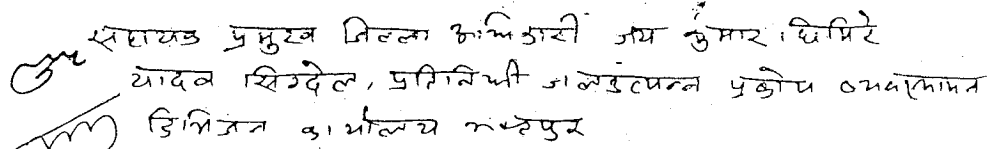 सहायक प्रमुख जिल्ला अधिकारी जय कुमार घिमिरे
यादव सिग्देल, प्रतिनिधी जलउत्पन्न प्रकोप व्यवस्थापन
डिभिजन कार्यालय भक्तपुर